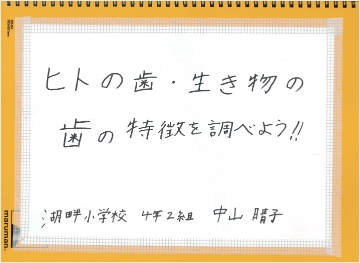 ヒトの歯・生き物の
歯の特徴を調べよう!!
湖畔小学校 4年2組 中山 晴子
maruman